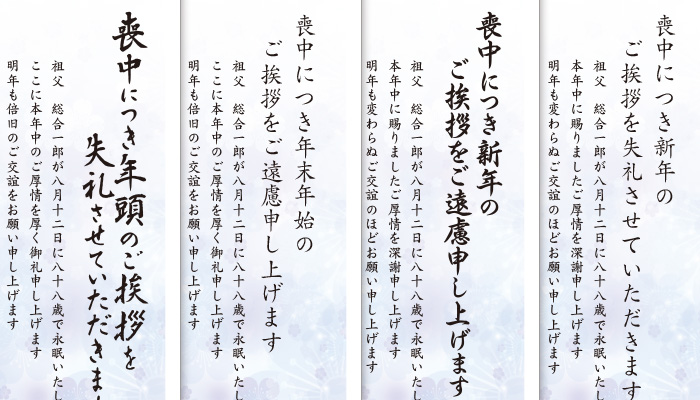 喪中につき年頭のご挨拶を
失礼させていただきま
祖父　総合一郎が八月十二日に八十八歳で永眠いたし
ここに本年中のご厚情を厚く御礼申し上げます
明年も倍旧のご交誼をお願い申し上げます
喪中につき年末年始の
ご挨拶をご遠慮申し上げます
祖父　総合一郎が八月十二日に八十八歳で永眠いたし
ここに本年中のご厚情を厚く御礼申し上げます
明年も倍旧のご交誼をお願い申し上げます
喪中につき新年の
ご挨拶をご遠慮申し上げます
祖父　総合一郎が八月十二日に八十八歳で永眠いたし
本年中に賜りましたご厚情を深謝申し上げます
明年も変わらぬご交誼のほどお願い申し上げます
喪中につき新年の
ご挨拶を失礼させていただきます
祖父　総合一郎が八月十二日に八十八歳で永眠いたし
本年中に賜りましたご厚情を深謝申し上げます
明年も変わらぬご交誼のほどお願い申し上げます